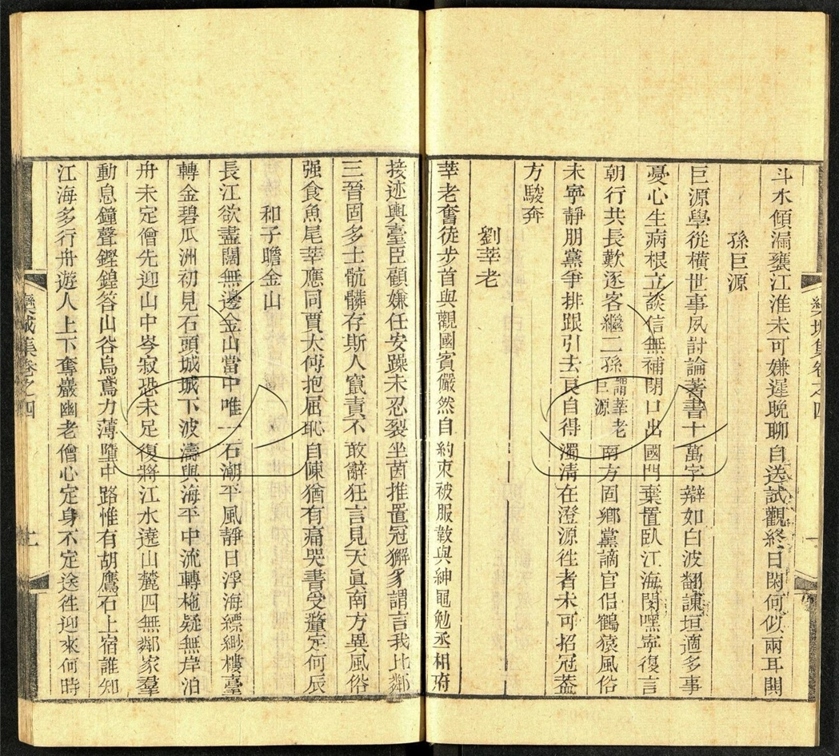 斗水傾漏甕江淮未可嫌遲晚聊自送試觀終日閧何似兩耳閴
孫巨源
巨源學從橫世事夙討論著書十萬字辯如白波翻諫垣適多事
憂心生病根立談信無補閉口出國門棄置臥江海閔嘿寧復言
朝行共長歎逐客繼二孫謂莘老巨源南方固鄉黨謫官侶鶴猿風俗
未寧靜朋黨爭排跟引去良自得濁清在澄源徃者未可招冠葢
方駿奔
劉莘老
莘老奮徒步首與觀國賓儼然自約束被服韍與紳黽勉丞相府
接迹輿臺臣顧嫌任安躁未忍裂坐茵推置冠獬豸謂言我比鄰
三晉固多士骯髒存斯人竄責不敢辭狂言見天眞南方異風俗
强食魚尾莘應同賈太傅抱屈恥自陳猶有痛哭書受釐定何辰
和子瞻金山
長江欲盡闊無邊金山當中唯一石潮平風靜日浮海縹緲樓臺
轉金碧瓜洲初見石頭城城下波濤與海平中流轉柂疑無岸泊
舟未定僧先迎山中岑寂恐未足復將江水遶山麓四無鄰家羣
動息鐘聲鏗鍠答山谷烏鳶力薄墮中路惟有胡鷹石上宿誰知
江海多行舟遊人上下奪巖幽老僧心定身不定送徃迎來何時
欒城集卷之四
欒城集卷之四